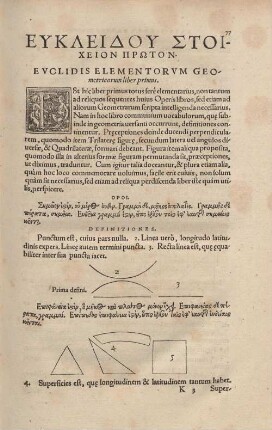 77
ΕΥΚΛΕΙΔΟΥ ΣΤΟΙ-
ΧΕΙΟΝ ΠΡΩΤΟΝ.
EVCLIDIS ELEMENTORVM GEO-
metricorum liber primus.
hic liber primus totus ferè elementarius, non tantum
ad reliquos sequentes huius Operis libros, sed etiam ad
aliorum Geometrarum scripta intelligenda necessarius.
Nam in hoc libro communium uocabulorum, quę subinde
in geometria usu ueniunt, definitiones continentur.
Pręceptiones deinde perpendicularem,
quomodo item Trilaterę figurę, secundum latera uel angulos diuersę,
& Quadrilaterę, formari debeant. Figura item aliqua proposita,
quomodo illa in alterius formę figuram permutanda sit,
traduntur. Cum igitur talia doceantur, & plura etiam alia,
quàm hoc loco commemorare uolumus, facile erit cuiuis, non solum
quàm sit necessarius, sed etiam ad reliqua perdiscenda liber iste quàm utilis,
perspicere.
ΟΡΟΙ.
Σημεῖόν ἐστιν, οὗ μέρος οὐθέν. Γραμμὴ δὲ, μῆκος ἀπλατές. Γραμμῆς δὲ
πέρατα, σημεῖα. Εὐθεῖα γραμμή ἐστιν, ἥτις ἐξ ἴσου τοῖς ἐφ' ἑαυτῆς σημείοις
κεῖται.
DEFINITIONES.
Punctum est, cuius pars nulla. 2. Linea uerò, longitudo latitudinis
expers. Lineę autem termini, puncta. 3. Recta linea est, quę ęquabiliter
inter sua puncta iacet.
2
Prima defini. .
3
Ἐπιφάνεια δέ ἐστιν, ὃ μῆκος καὶ πλάτος μόνον ἔχει. Ἐπιφανείας δὲ πέρατα,
γραμμαί. Ἐπίπεδος ἐπιφάνειά ἐστιν, ἥτις ἐξ ἴσου ταῖς ἐφ' ἑαυτῆς εὐθείαις
κεῖται.
4
5
4. Superficies est, quę longitudinem & latitudinem tantum habet.
K 3 Super-